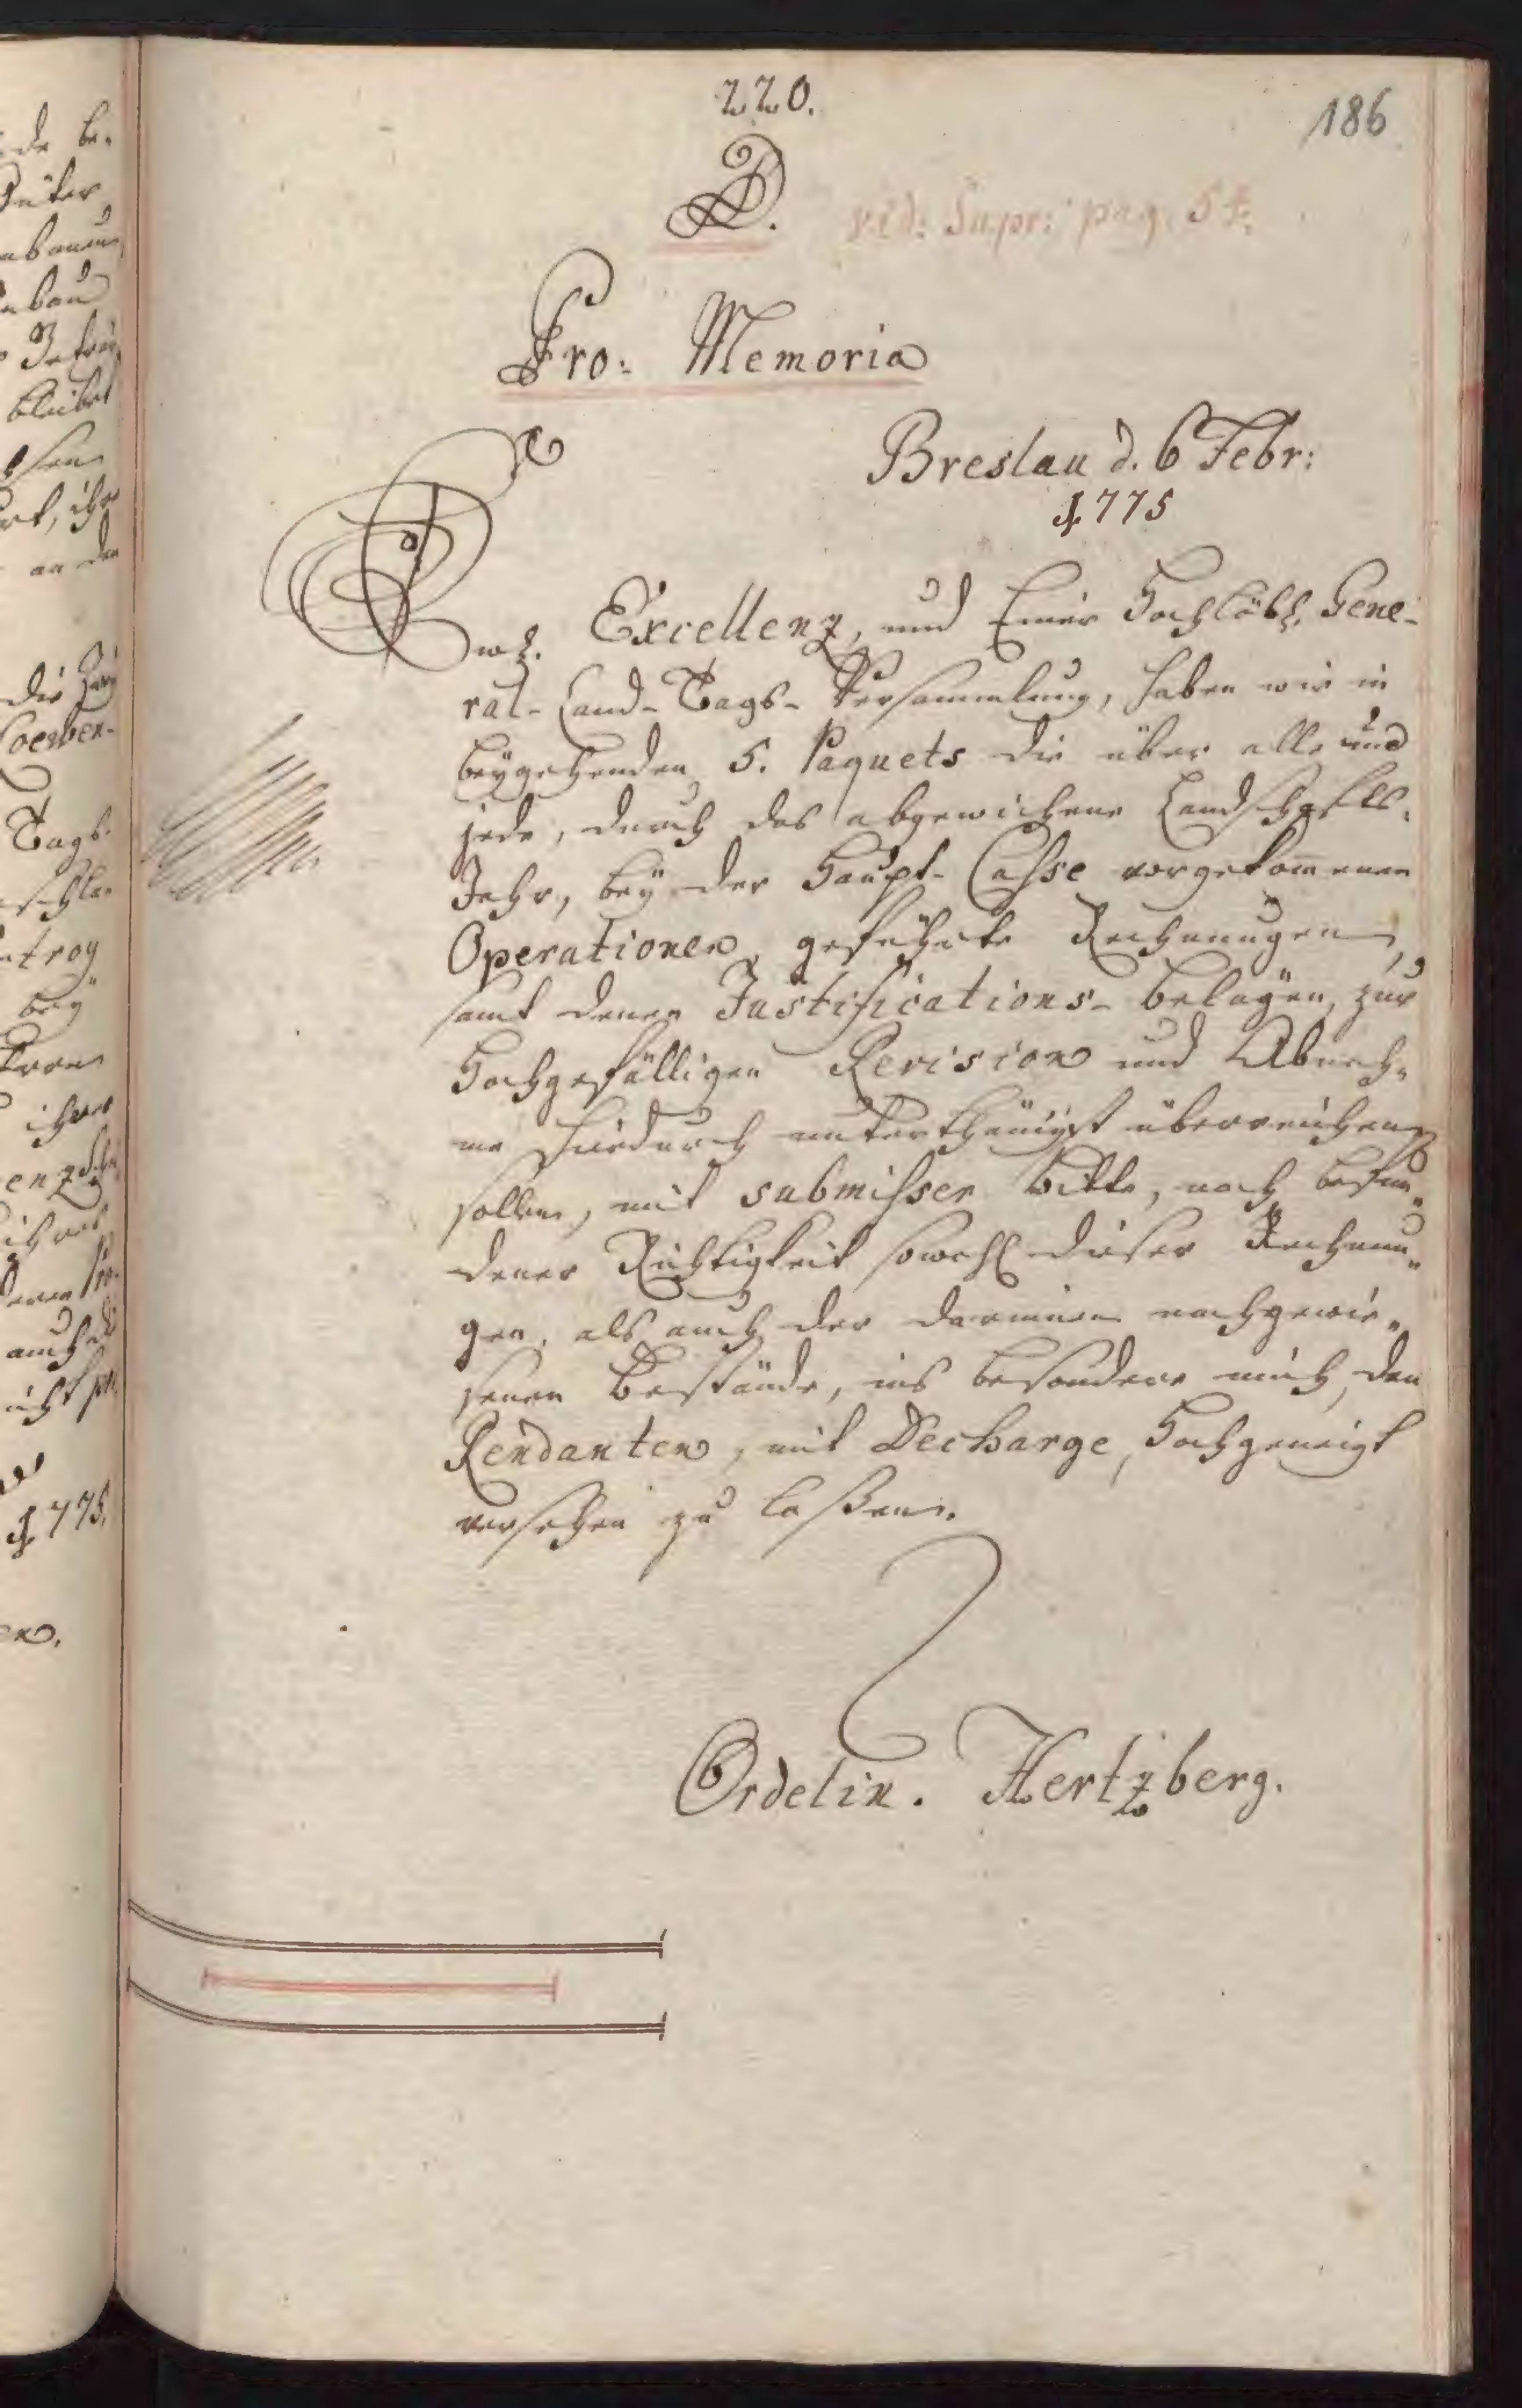 220.
186
D.
vid: Supr: pag. 54.
Pro: Memoria
Breslau d. 6 Febr:
1775
Ew. Excellenz, und Einer Hochlöbl. Gene-
ral-Land-Tags-Versammlung, haben wir in
beygehenden 5. Paquets die über alle und
jede, durch das abgewichene Landschaftl.
Jahr, bey der Haupt-Casse vorgekom̄enen
Operationen, geführte Rechnungen,
samt denen Justifications-belägen, zur
Hochgefälligen Revision und Abneh-
me hiedurch unterthänigst überreichen
sollen, mit submisser bitte, nach befun-
dener Richtigkeit sowohl dieser Rechnun-
gen, als auch der darinnen nachgewie-
senen Bestände, ins besondere mich, den
Rendanten, mit Decharge, Hochgeneigt
versehen zu laßen.
Ordelin. Hertzberg.